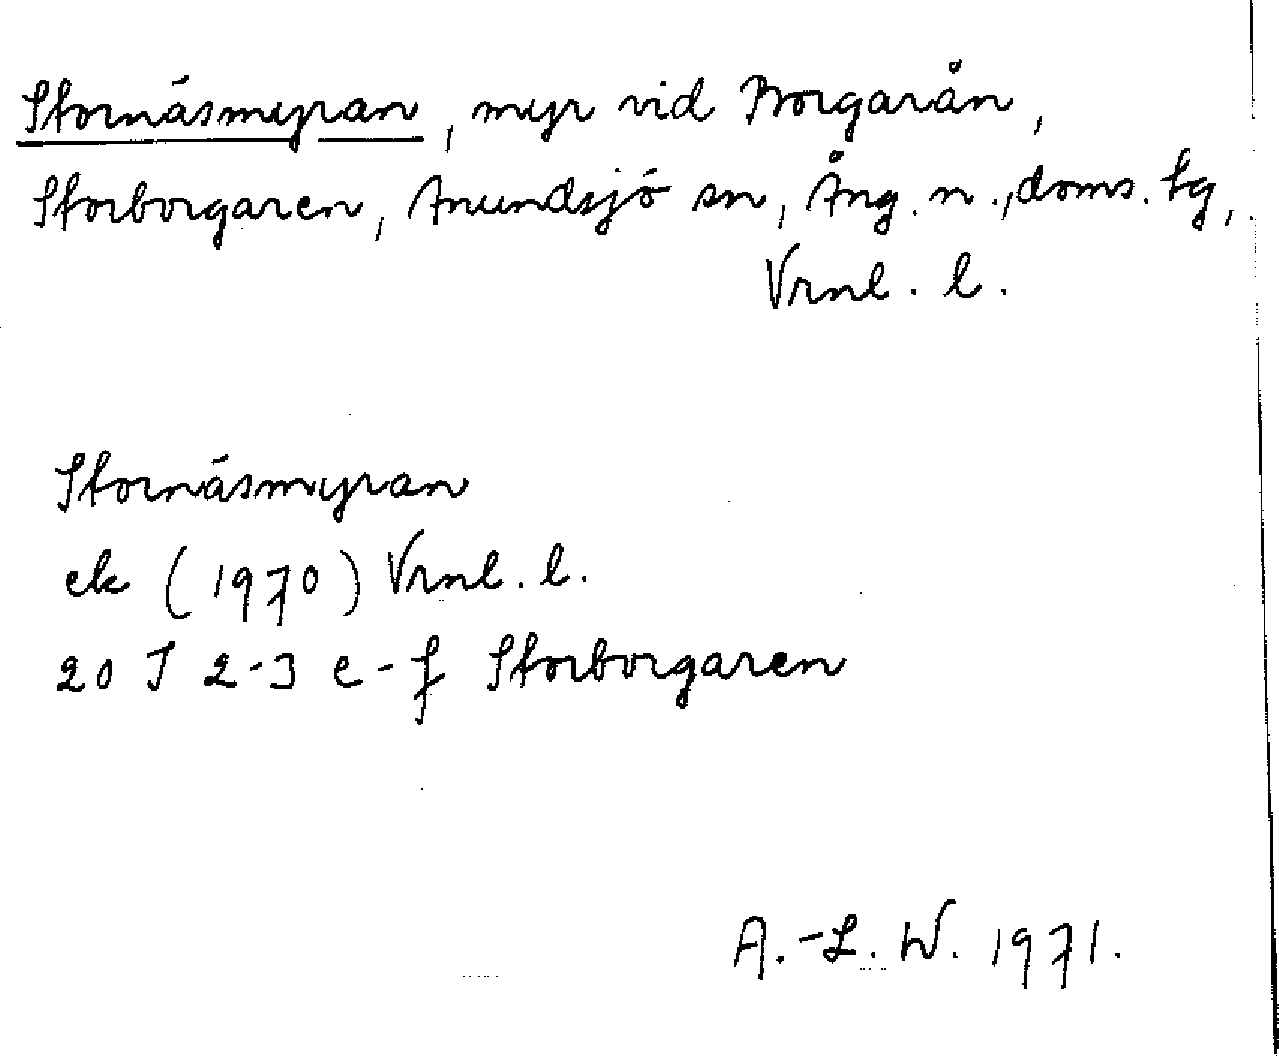 Stornäsmyran, myr vid Borgarån,
Storborgaren, Anundsjö sn, Ång. n., doms. tg,
Vrnl. l.
Stornäsmyran
ek (1970) Vrnl. l.
20 J 2-3 e-f Storborgaren
A.-L. W. 1971.